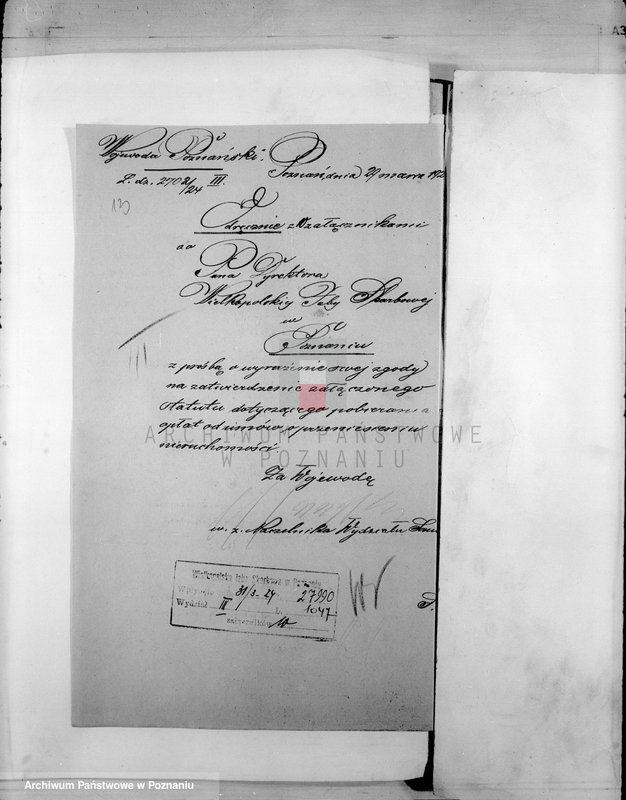 Wojewoda Poznański. Poznań, dnia 29 marca 192
L. dz. 2702/24 III.
Odręcznie z 10 załącznikami
do
Pana Dyrektora
Wielkopolskiej Izby Skarbowej
we
Poznaniu
z prośbą o wyrażenie swej zgody
na zatwierdzenie załączonego
statutu dotyczącego pobierania
opłat od umów o przeniesieniu
nieruchomości.
Za Wojewodę
w. z. Naczelnika Wydziału
Wielkopolska Izba Skarbowa w Poznaniu
Wpłynęło 31/3 24 27990
Wydział III L. 1047
załączników 10
ARCHIWUM PAŃSTWOWE
W POZNANIU
Archiwum Państwowe w Poznaniu